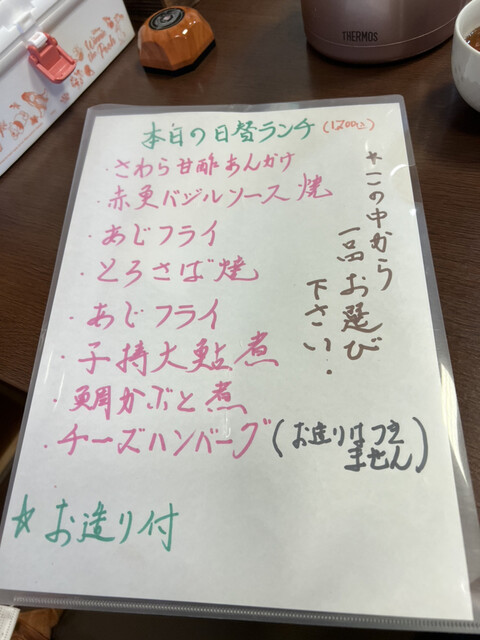 THERMOS
本日の日替ランチ (1200込)
・さわら甘酢あんかけ
・赤魚バジルソース焼
・あじフライ
・とろさば焼
・あじフライ
・子持大鮎煮
・鯛かぶと煮
・チーズハンバーグ(お造りはつきません)
*この中から
一品お選び
下さい.
☆お造り付